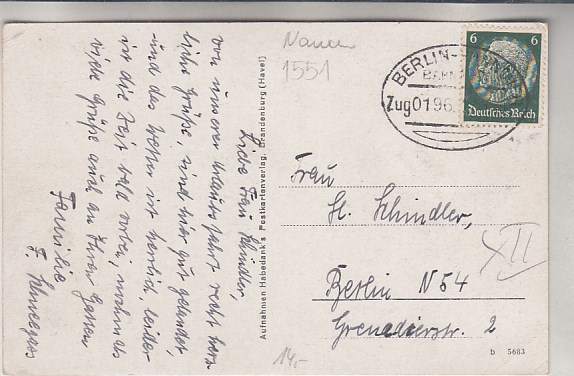 Liebe Frau Schindler,
von unserer Urlaubsfahrt recht herz-
liche Grüße, sind hier gut gelandet,
und das Wetter ist herrlich, leider
ist die Zeit bald vorbei, nochmals
viele Grüße auch an Ihren Gatten
Familie
F. Schneegass
Aufnahmen Habedank's Postkartenverlag, Brandenburg (Havel)
Nauen
1551
BERLIN-
BAHN
Zug 0196
6 6
Deutsches Reich
Frau
H. Schindler,
Berlin N 54
Grenadierstr. 2
XII
14,-
b 5683